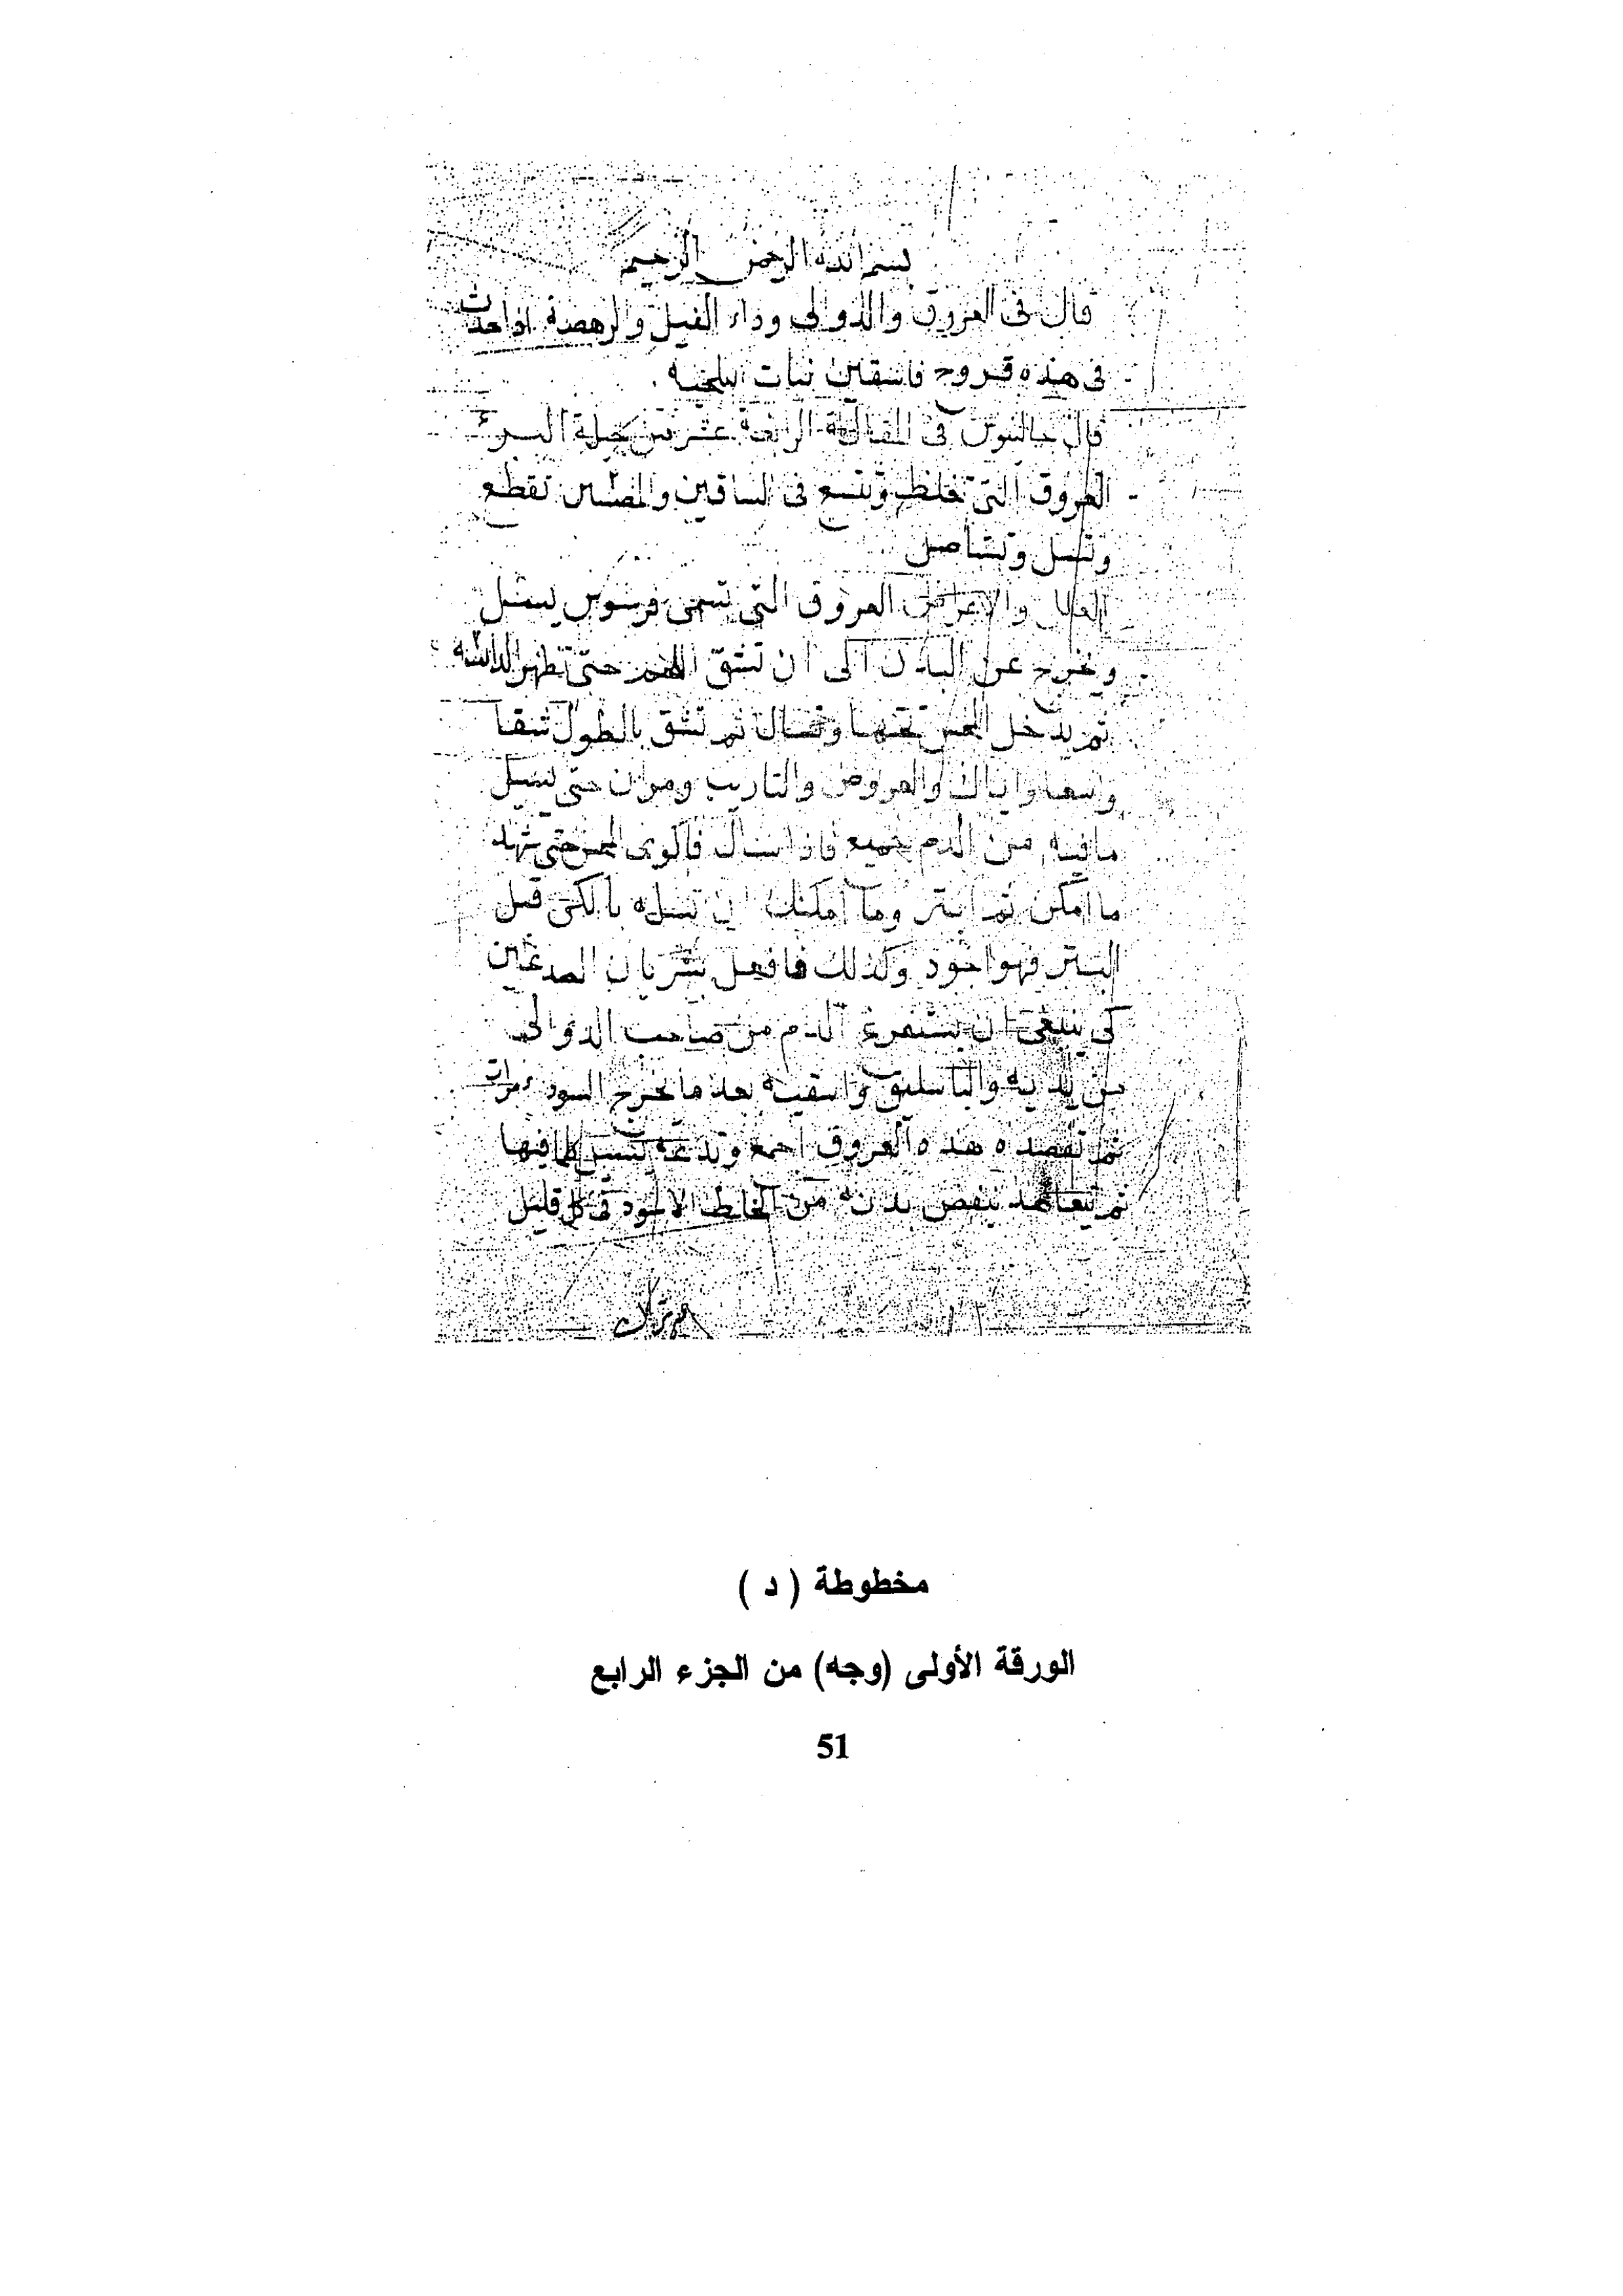 بسم الله الرحمن الرحيم
قال فى العروق والدوالى وداء الفيل والرهصة اذا حدث
فى هذه قروح
قال جالينوس فى المقالة الرابعة عشر من حيلة البرء
العروق التى تغلظ وتتسع فى الساقين تقطع
وتسل وتستأصل
العلل والاعراض العروق التى تسمى
ويخرج عن البدن الى ان تشق حتى تظهر
ثم يدخل تحتها وتشال ثم تشق بالطول شقا
واسعا واياك والعروض والتاريب حتى يسيل
ما فيه من الدم جميع فاذا سال
ما امكن ثم ابتر وما امكنك ان تسله بالكى قبل
البتر فهو اجود وكذلك فافعل بشريان الصدغين
ينبغى ان يستفرغ الدم من صاحب الدوالى
من يديه والباسليق واسقيه بعد ما يخرج السوداء مرات
ثم تفصده هذه العروق اجمع وتدعه كلما فيها
ثم يتعاهد بنفض بدنه من الخلط الاسود فى كل قليل
مخطوطة ( د )
الورقة الأولى (وجه) من الجزء الرابع
51